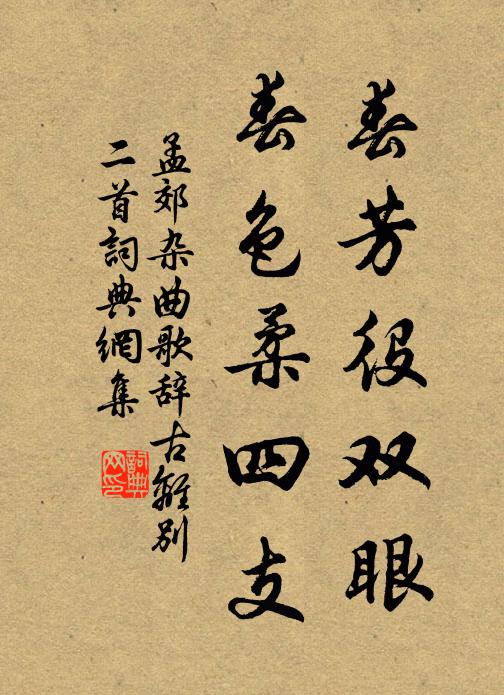 春芳役双眼
春色柔四支
孟郊杂曲歌辞古離别
二首詞典網集
詞典网印